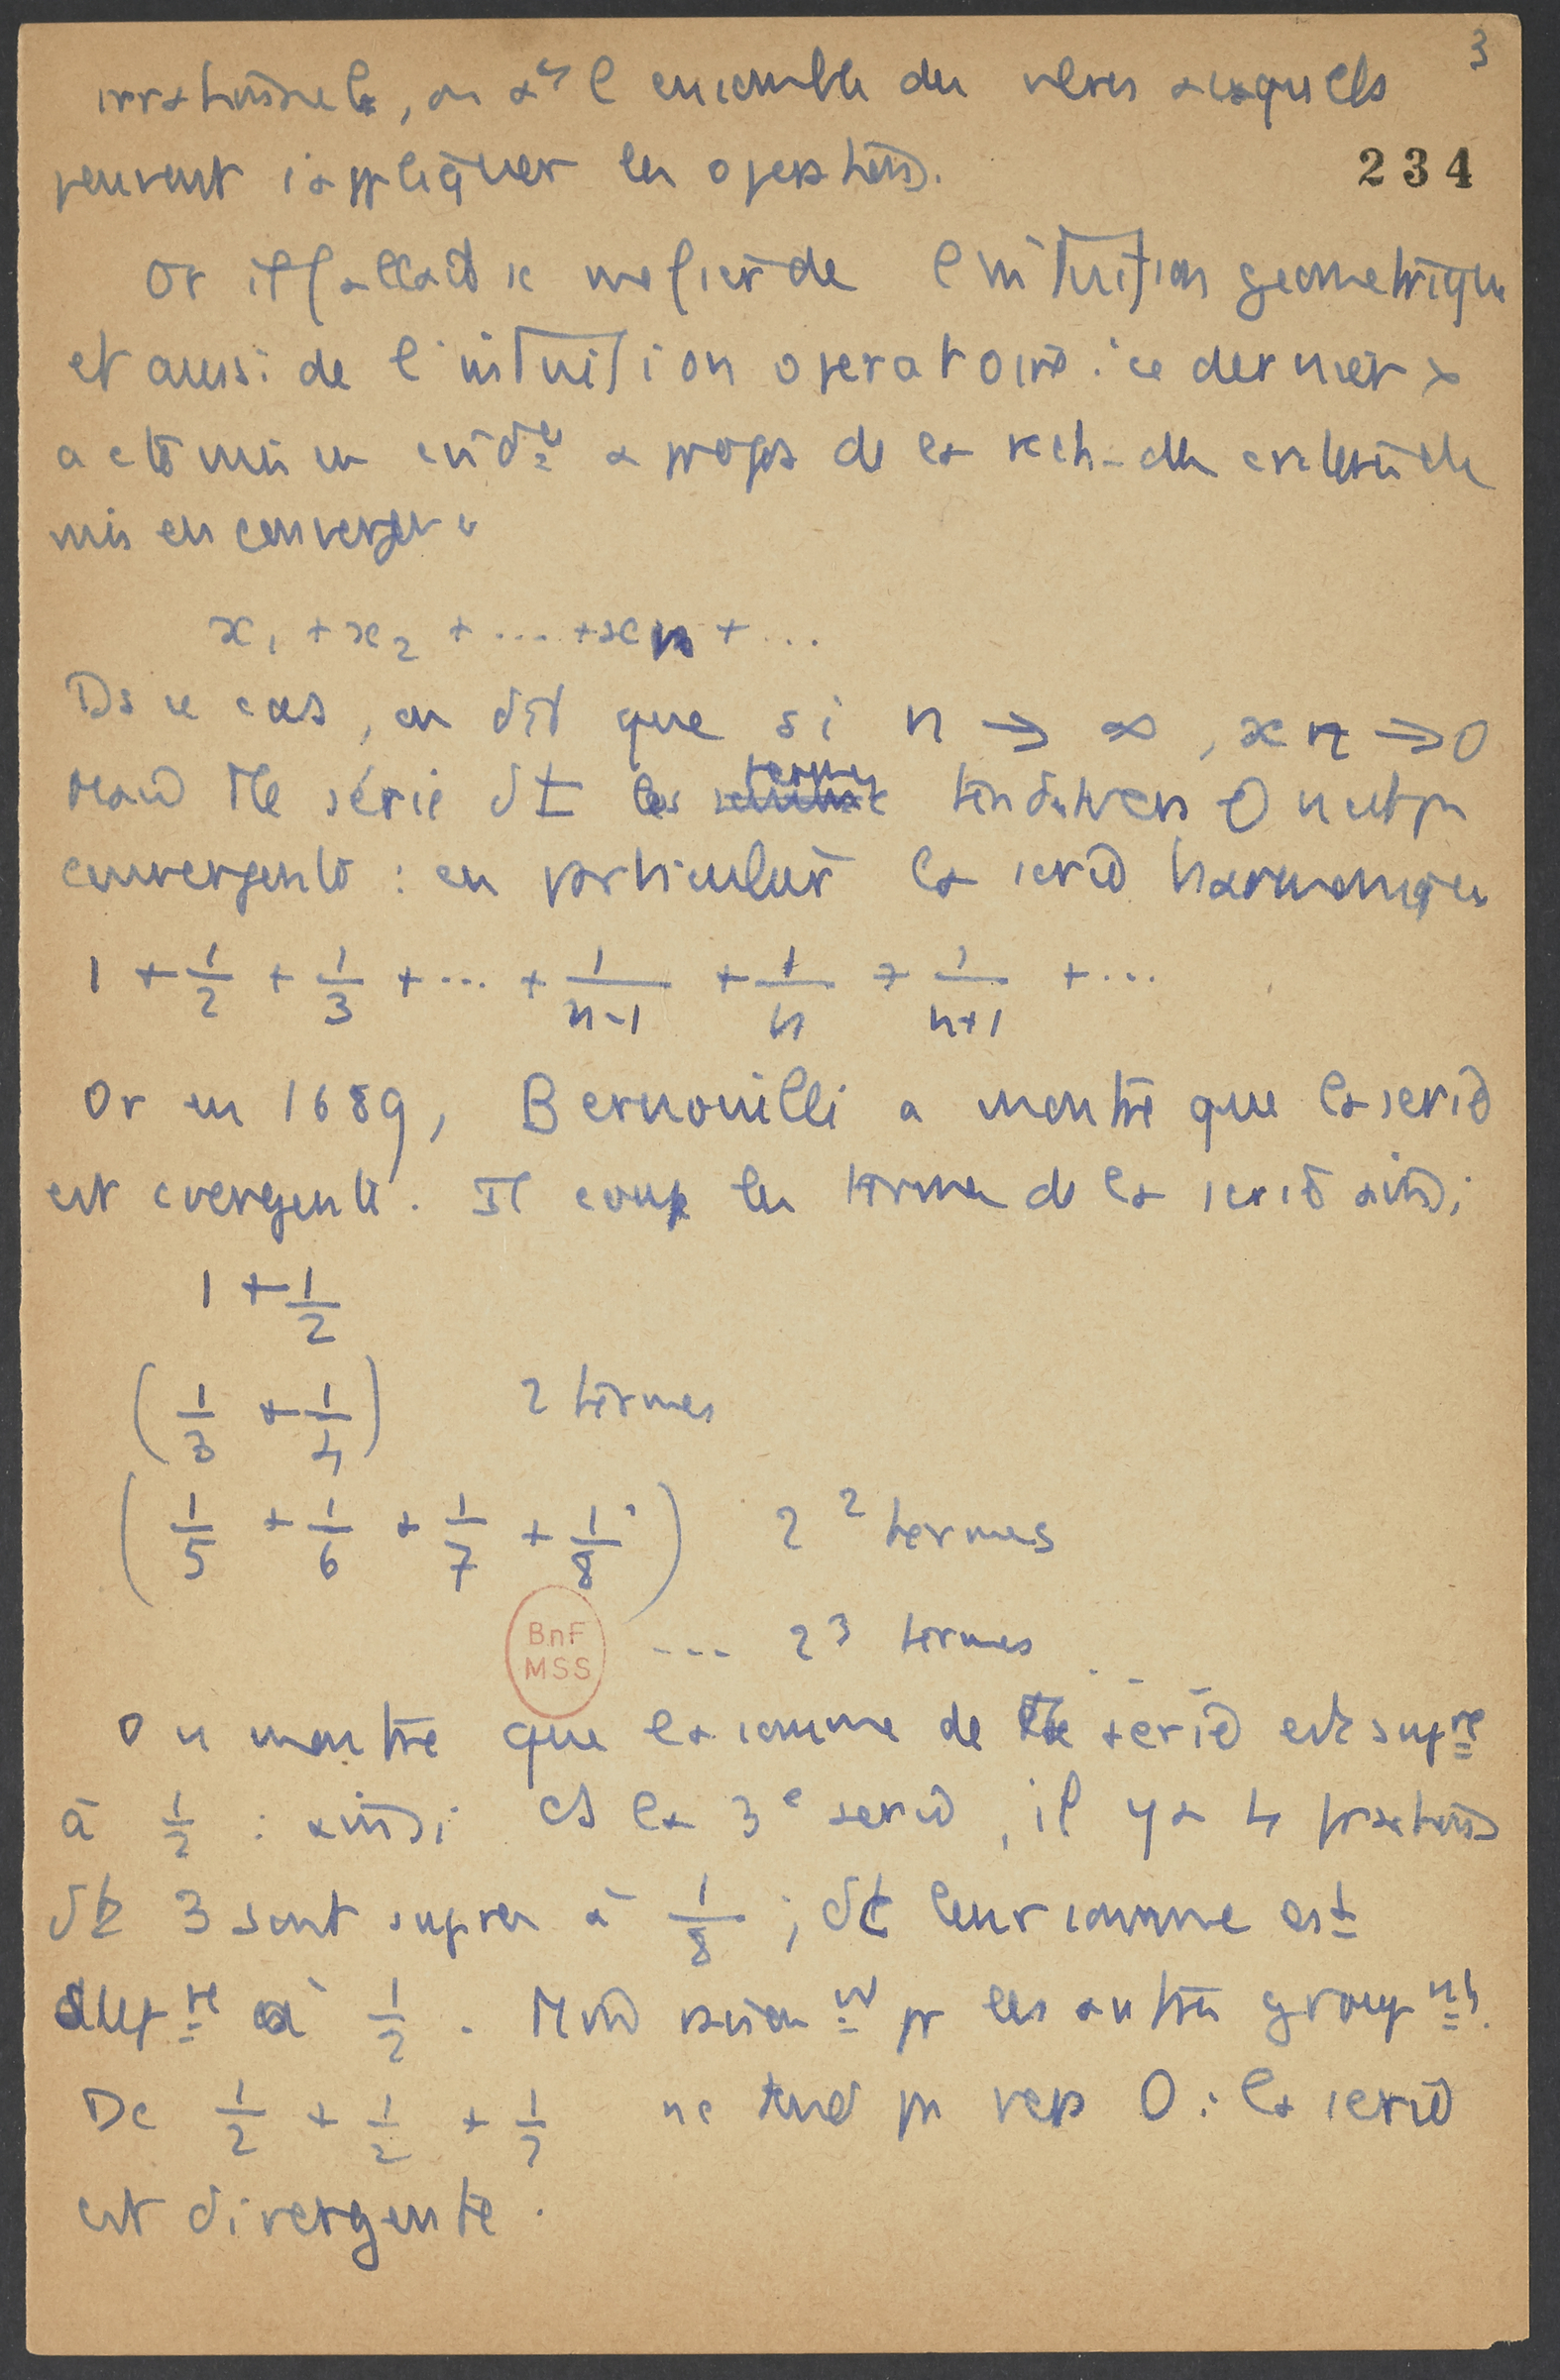 3
irrationnels, on a l'ensemble des valeurs auxquels
234
peuvent s'appliquer les operations.
Or il fallait se mefier de l'intuition geometrique
et aussi de l'intuition operatoire : ce dernier
a été mis en evid à propos de la rech. des critères de
mis en convergence
x1 + x2 + ... + xn + ...
Ds ce cas, on dit que si n → ∞, xn → 0
Mais tte série dt les termes tendent vers 0 n'est pas
convergente : en particulier la serie harmonique
1 + 1/2 + 1/3 + ... + 1/n-1 + 1/n + 1/n+1 + ...
Or en 1689, Bernouilli a montré que la serie
est cvergente. Il coupe les termes de la serie ainsi
1 + 1/2
(1/3 + 1/4) 2 termes
(1/5 + 1/6 + 1/7 + 1/8) 2² termes
BnF
MSS
--- 2³ termes
On montre que la somme de tte serie est supre
à 1/2 : ainsi ds la 3e serie, il y a 4 fractions
dt 3 sont supres à 1/8 ; dc leur somme est
supre à 1/2 . Même raisont pr les autres groupnts.
Dc 1/2 + 1/2 + 1/2 ne tend pas vers 0 : la serie
est divergente.